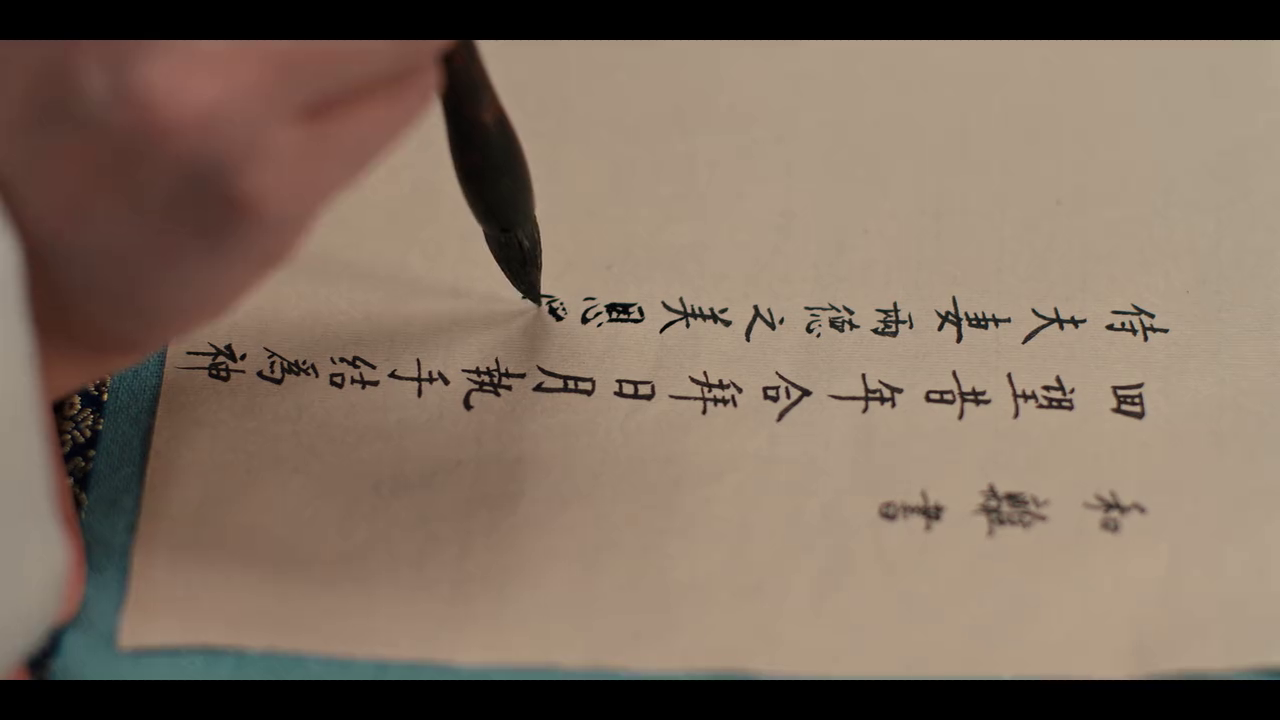 和離書
回望昔年合拜日月執手結為神
侍夫妻兩德之美恩